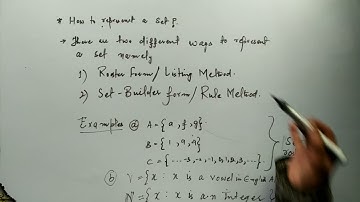 * How to represent a set?
→ There are two different ways to represent
a set namely
1) Roster Form / Listing Method.
2) Set-Builder form / Rule Method.
Examples @ A = {a, f, g}
B = {1, 9, 9}
C = {... -3, -2, -1, 0, 1, 2, 3, ...}
(b) V = {x : x is a vowel in English A
N = {x : x is an integer}